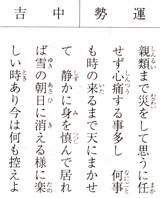 運勢
中吉
親類まで災をして思うに任
せず心痛する事多し 何事
も時の来るまで天にまかせ
て 静かに身を慎んで居れ
ば雪の朝日に消える様に楽
しい時あり今は何も控えよ